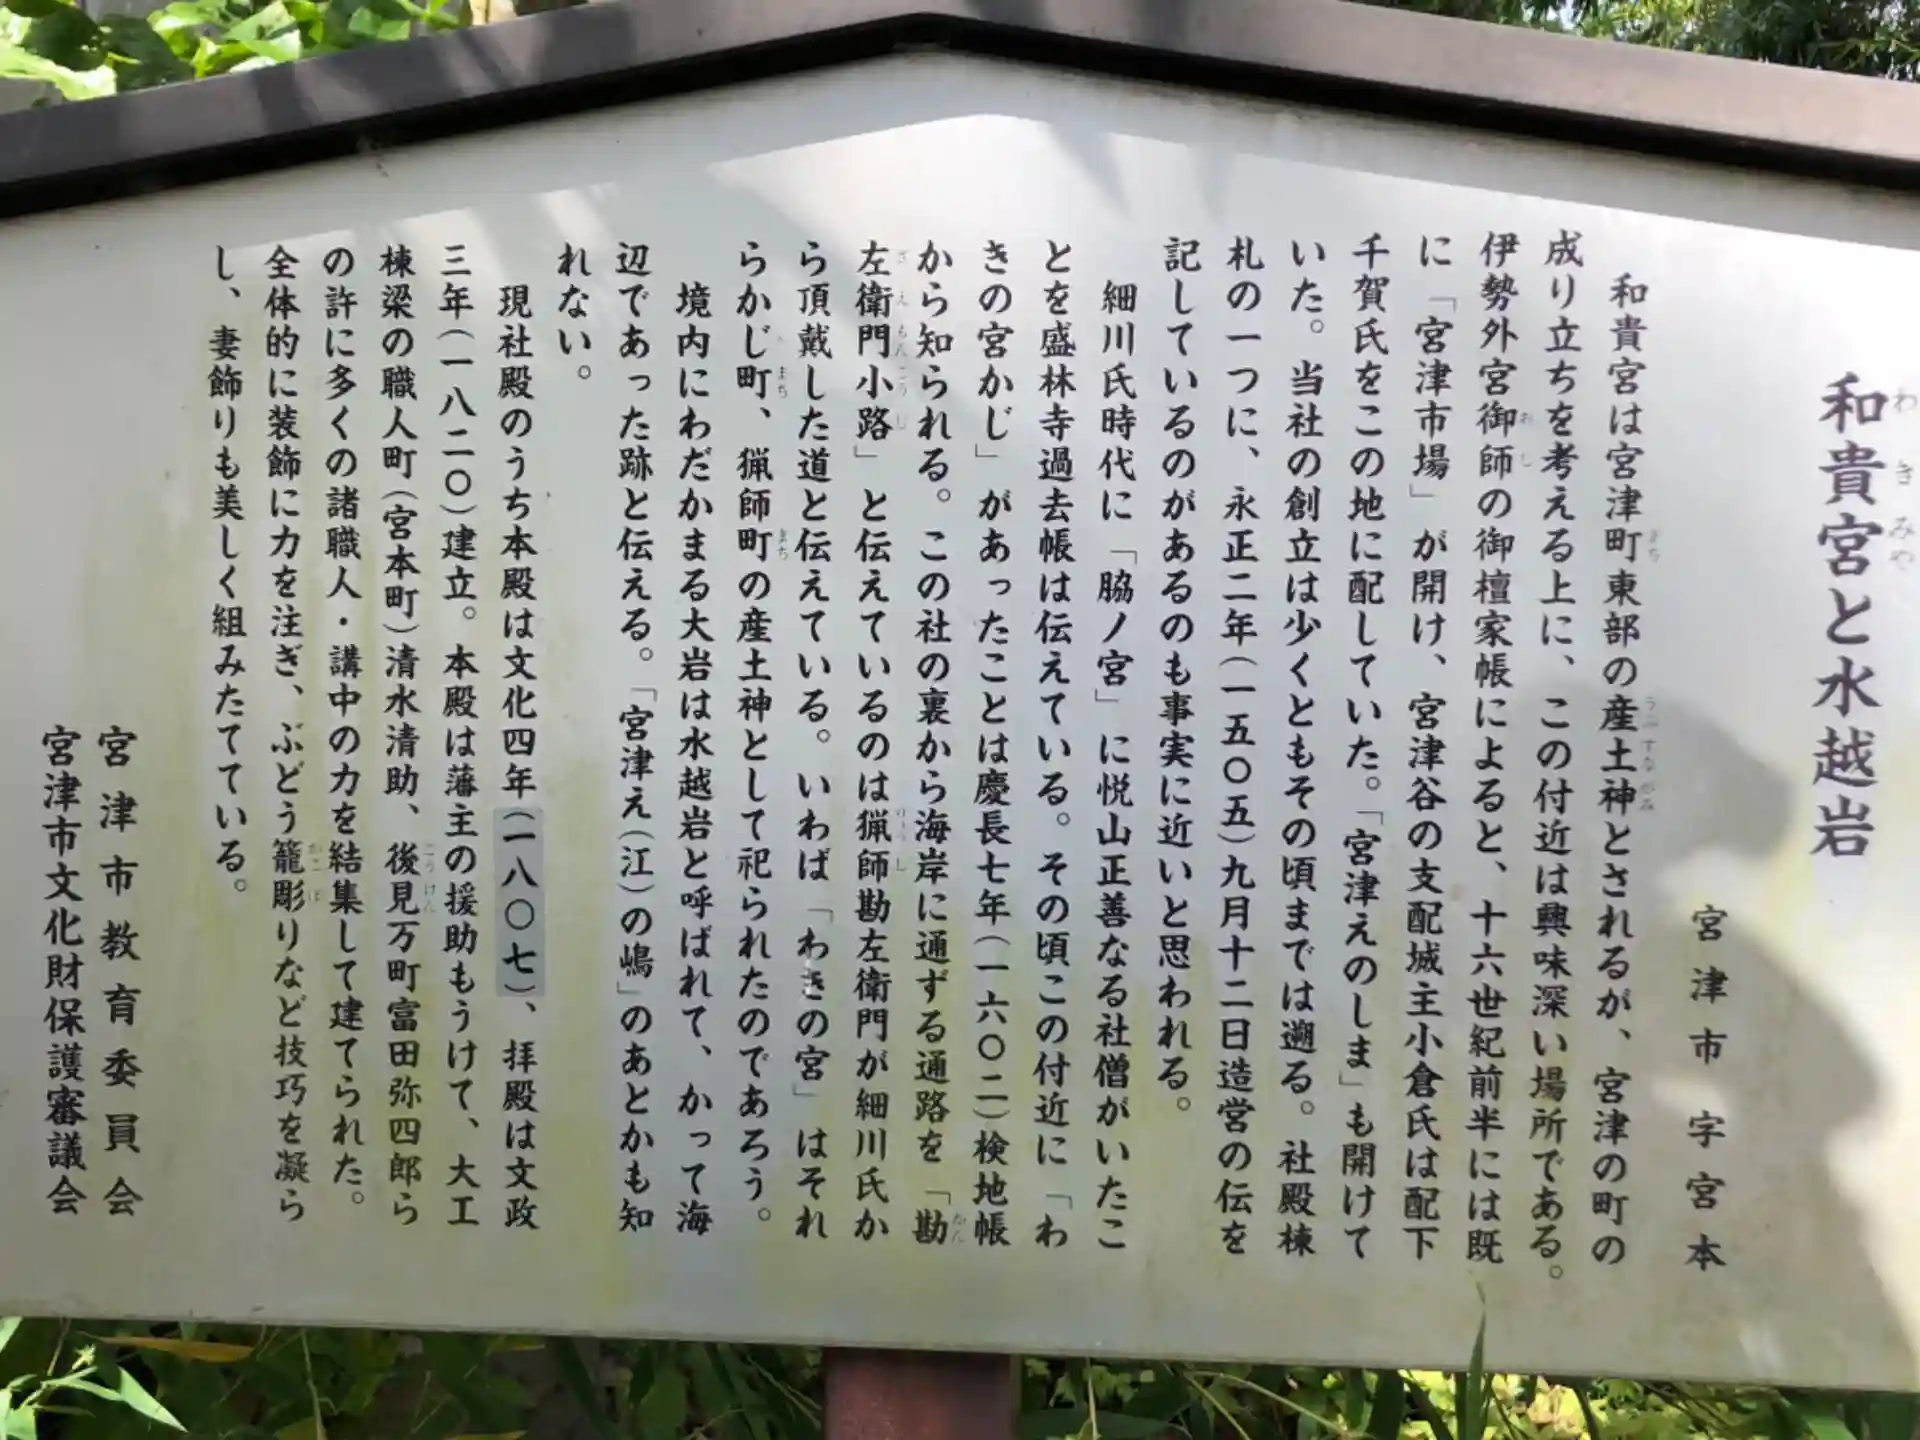 和貴宮と水越岩
宮津市字宮本
和貴宮は宮津町東部の産土神とされるが、宮津の町の
成り立ちを考える上に、この付近は興味深い場所である。
伊勢外宮御師の御檀家帳によると、十六世紀前半には既
に「宮津市場」が開け、宮津谷の支配城主小倉氏は配下
千賀氏をこの地に配していた。「宮津えのしま」も開けて
いた。当社の創立は少くともその頃までは遡る。社殿棟
札の一つに、永正二年(一五〇五)九月十二日造営の伝を
記しているのがあるのも事実に近いと思われる。
細川氏時代に「脇ノ宮」に悦山正善なる社僧がいたこ
とを盛林寺過去帳は伝えている。その頃この付近に「わ
きの宮かじ」があったことは慶長七年(一六〇二)検地帳
から知られる。この社の裏から海岸に通ずる通路を「勘
左衛門小路」と伝えているのは猟師勘左衛門が細川氏か
ら頂戴した道と伝えている。いわば「わきの宮」はそれ
らかじ町、猟師町の産土神として祀られたのであろう。
境内にわだかまる大岩は水越岩と呼ばれて、かって海
辺であった跡と伝える。「宮津え(江)の嶋」のあとかも知
れない。
現社殿のうち本殿は文化四年(一八〇七)、拝殿は文政
三年(一八二〇)建立。本殿は藩主の援助もうけて、大工
棟梁の職人町(宮本町)清水清助、後見万町富田弥四郎ら
の許に多くの諸職人・講中の力を結集して建てられた。
全体的に装飾に力を注ぎ、ぶどう籠彫りなど技巧を凝ら
し、妻飾りも美しく組みたてている。
宮津市教育委員会
宮津市文化財保護審議会